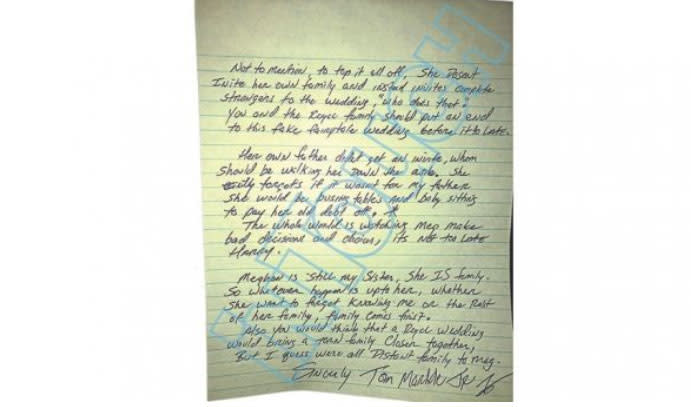 Not to mection, to top it all off, She Dosent
Invite her own family and instead invites complete
strangers to the wedding, "who does that".
You and the Royal family should put an end
to this fake fairytale wedding before it to Late.
Her own father didnt get an invite, whom
should be walking her Down the aisle. She
forgets if it wasnt for my father
She would be busing tables and baby sitting
to pay her old debt off.
The whole world is watching Meg make
bad decisions and choices, its not too Late
Harry.
Meghan is still my Sister, She IS family.
So whatever happen is up to her, whether
she want to forget Knowing me or the Rest
of her family, family comes first.
Also you would think that a Royal Wedding
would bring a torn family Closer together,
But I guess were all Distant family to Meg.
Sincerly Tom Markle Jr